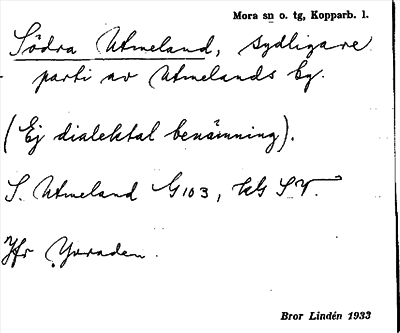 Mora sn o. tg, Kopparb. l.
Södra Utmeland, sydligare
parti av Utmelands by.
(Ej dialektal benämning).
S. Utmeland G103,
Jfr
Bror Lindén 1933